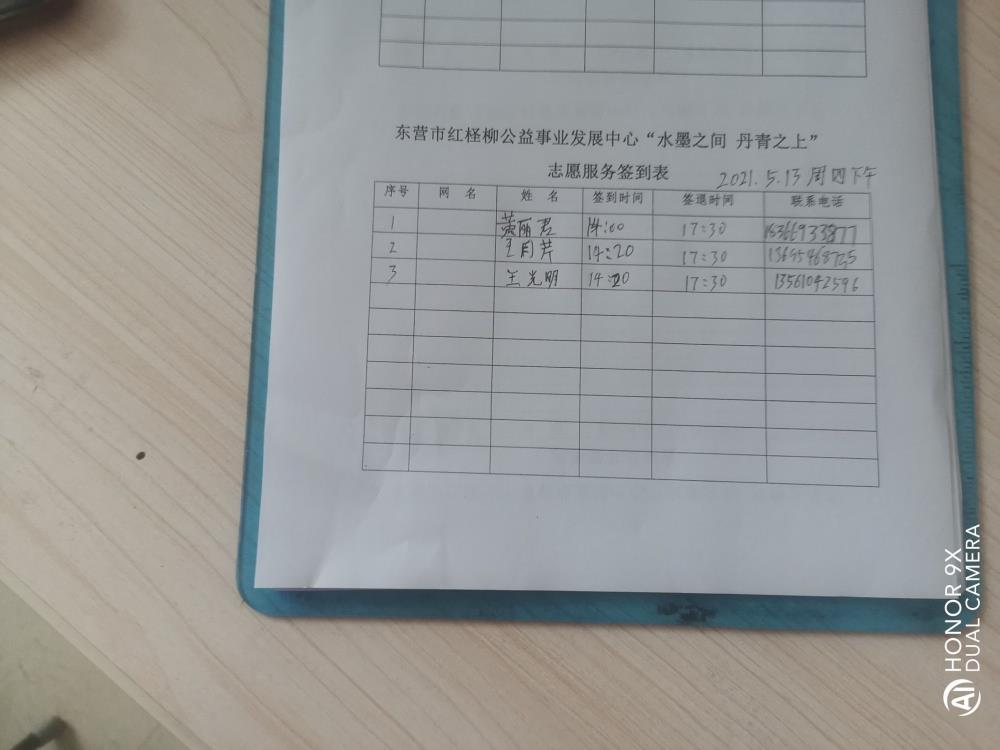 东营市红柽柳公益事业发展中心“水墨之间 丹青之上”
志愿服务签到表 2021.5.13 周四下午
序号 网 名 姓 名 签到时间 签退时间 联系电话
1 黄丽君 14:00 17:30 15366933877
2 王月芹 14:20 17:30
3 王光明 14:20 17:30 13561042596
HONOR 9X
AI DUAL CAMERA